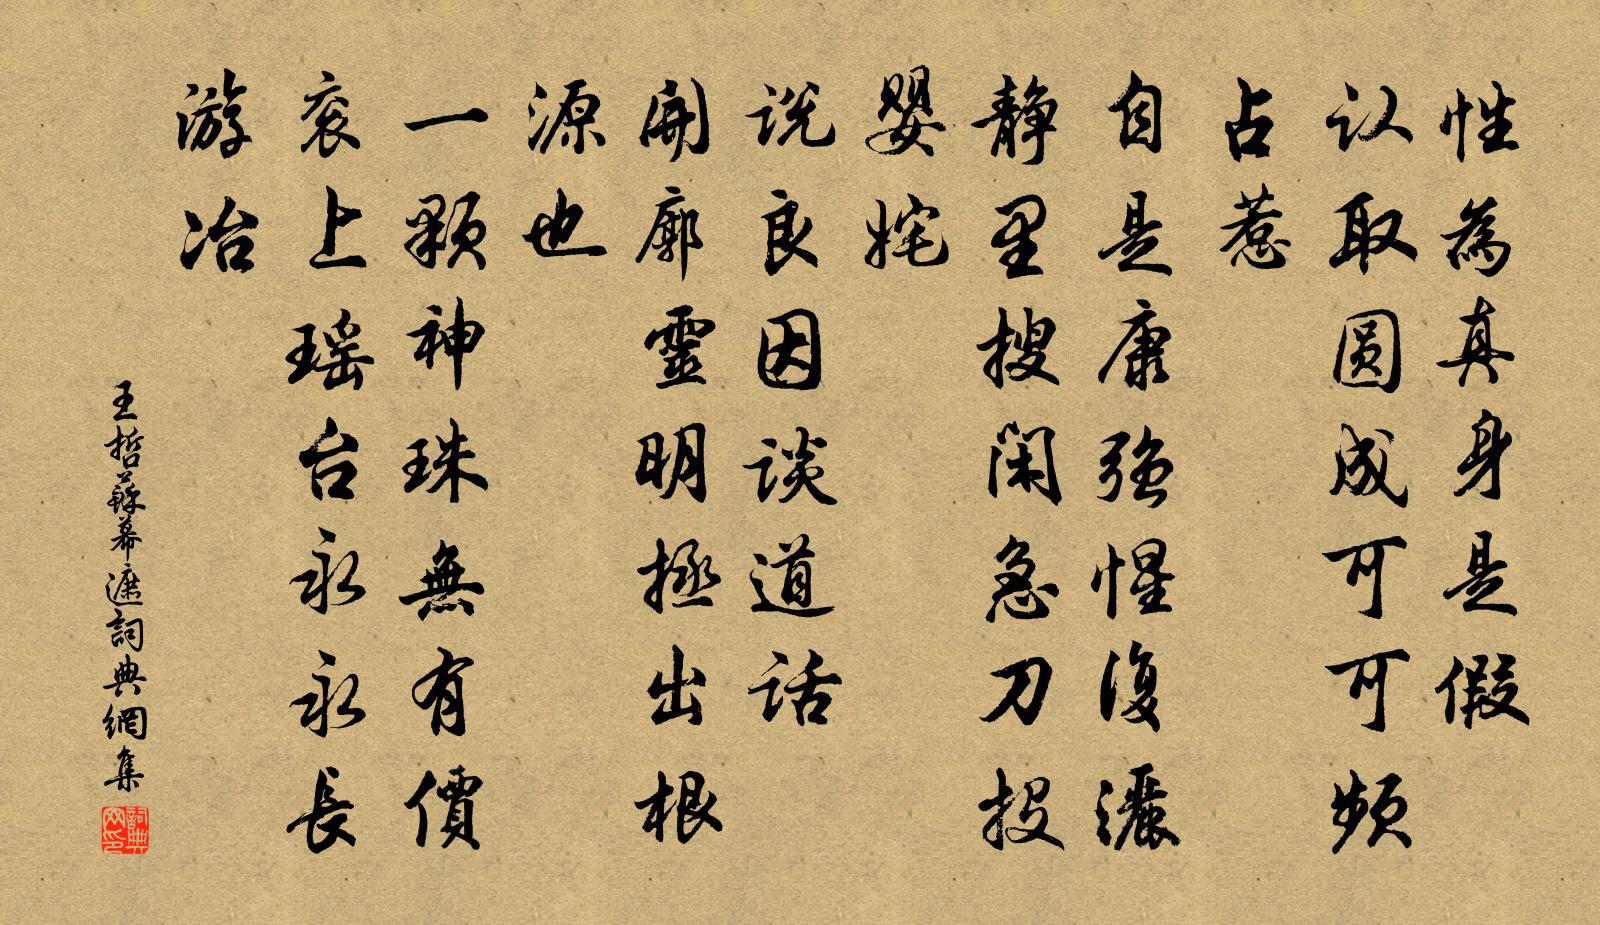 性為真身是假
认取圆成可可频
占惹
自是康強惺復灑
静里搜閑急刀投
婴姹
说良因谈道话
開廓靈明拯出根
源也
一颗神珠無有價
衮上瑶台永永長
游冶
王哲蘇幕遮詞典網集
詞典网印